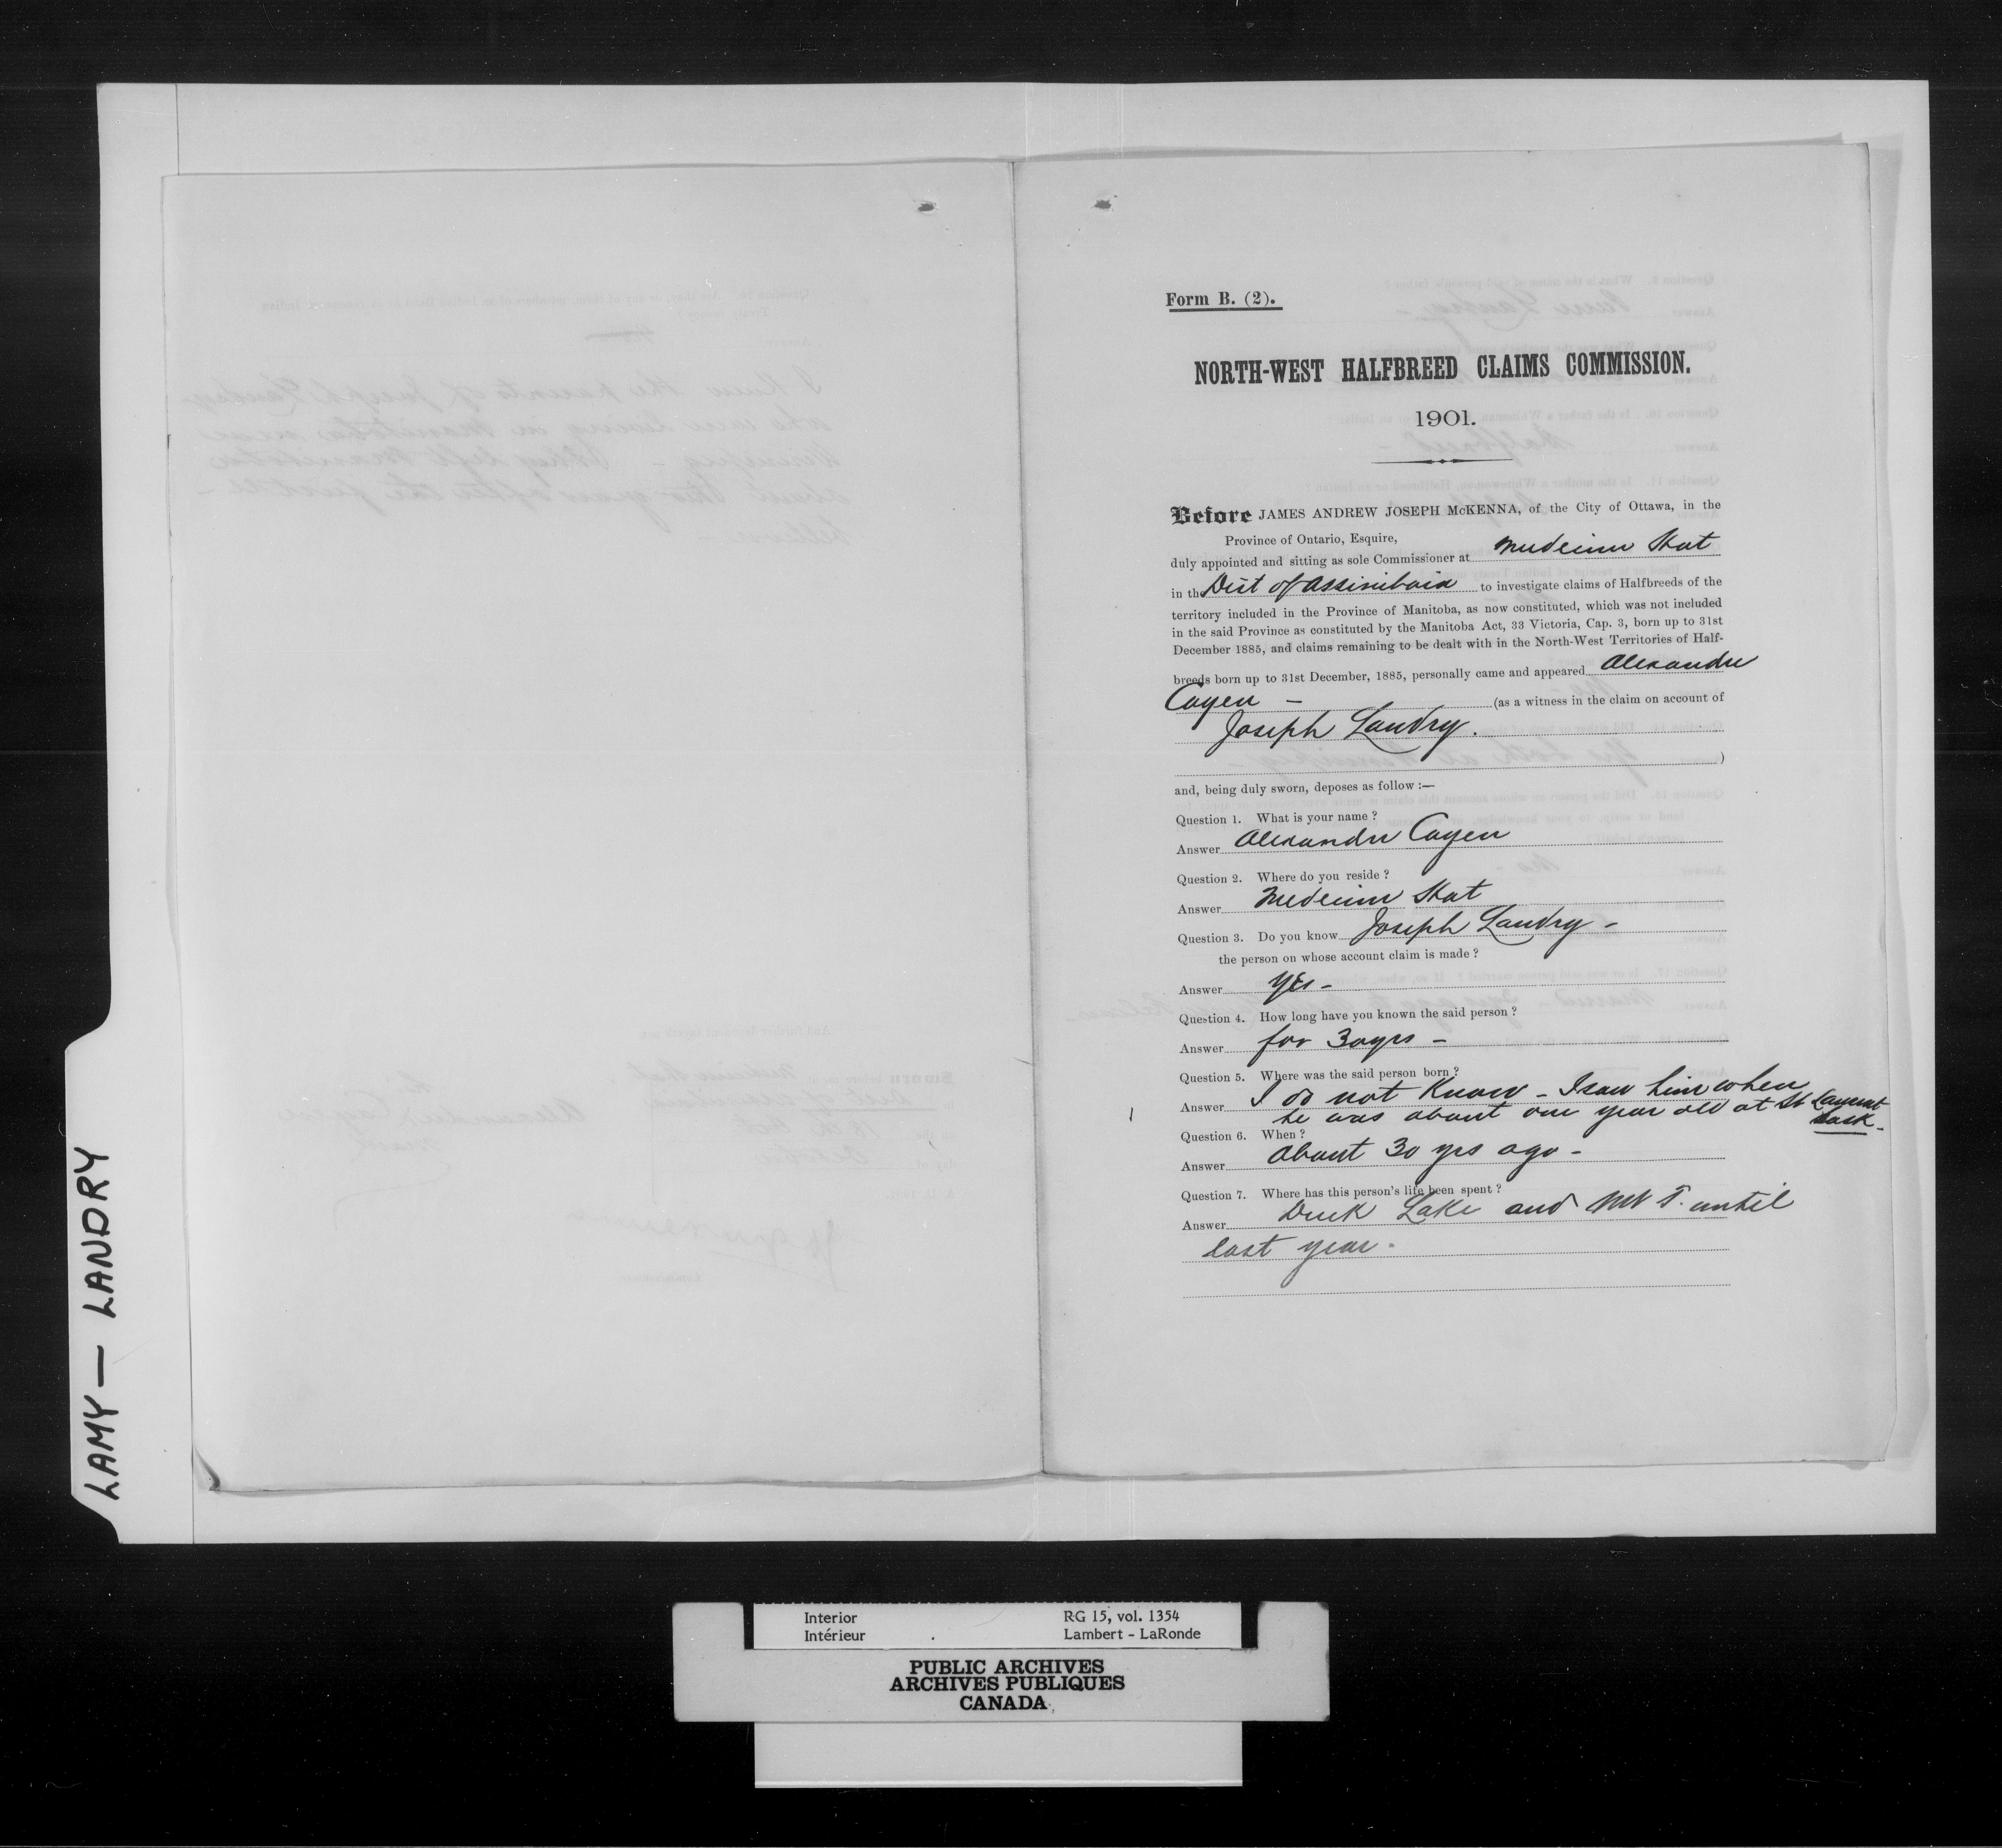 LAMY — LANDRY
Form B. (2).
NORTH-WEST HALFBREED CLAIMS COMMISSION.
1901.
Before JAMES ANDREW JOSEPH McKENNA, of the City of Ottawa, in the
Province of Ontario, Esquire,
duly appointed and sitting as sole Commissioner at Medicine Hat
in the Dist of Assiniboia to investigate claims of Halfbreeds of the
territory included in the Province of Manitoba, as now constituted, which was not included
in the said Province as constituted by the Manitoba Act, 33 Victoria, Cap. 3, born up to 31st
December 1885, and claims remaining to be dealt with in the North-West Territories of Half-
breeds born up to 31st December, 1885, personally came and appeared Alexandre
Cayen - (as a witness in the claim on account of
Joseph Landry.
)
and, being duly sworn, deposes as follow :—
Question 1. What is your name ?
Answer Alexandre Cayen
Question 2. Where do you reside ?
Answer Medicine Hat
Question 3. Do you know Joseph Landry -
the person on whose account claim is made ?
Answer Yes -
Question 4. How long have you known the said person ?
Answer for 30 yrs -
Question 5. Where was the said person born ?
Answer I do not know - I saw him when
he was about one year old at St Laurent
Sask -
Question 6. When ?
Answer About 30 yrs ago -
Question 7. Where has this person's life been spent ?
Answer Duck Lake and NW T. until
last year -
Interior RG 15, vol. 1354
Intérieur Lambert - LaRonde
PUBLIC ARCHIVES
ARCHIVES PUBLIQUES
CANADA